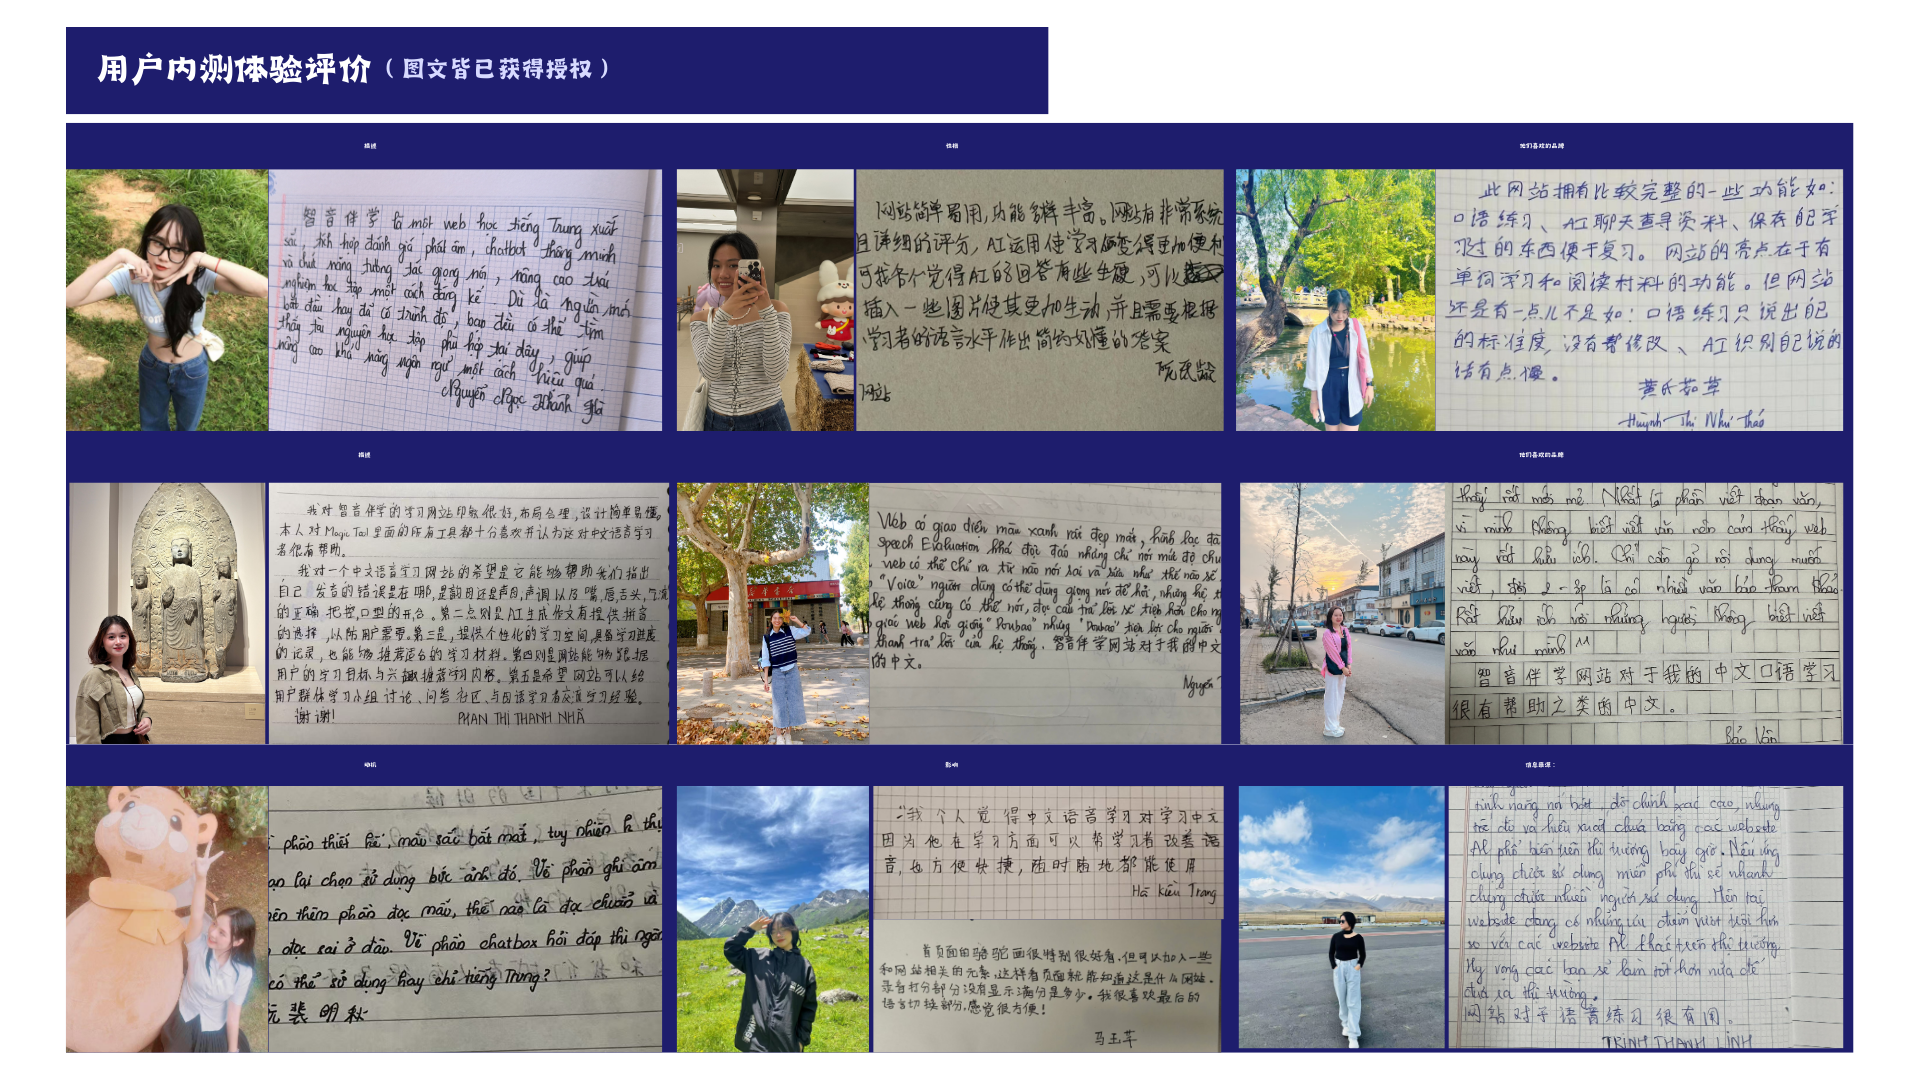 用户内测体验评价（图文皆已获得授权）
描述
性格
他们喜欢的品牌
智音伴学 là một web học tiếng Trung xuất
sắc, tích hợp đánh giá phát âm, chatbot thông minh
và chức năng tương tác giọng nói, nâng cao trải
nghiệm học tập một cách đáng kể. Dù là người mới
bắt đầu hay đã có trình độ, bạn đều có thể tìm
thấy tài nguyên học tập phù hợp tại đây, giúp
nâng cao khả năng ngôn ngữ một cách hiệu quả.
Nguyễn Ngọc Khánh Hà
网站简单易用,功能多样丰富。网站有非常系统
且详细的评分, AI运用使学习变得更加便利
可我个人觉得AI的回答有些生硬,可以
插入一些图片使其更加生动,并且需要根据
学习者的语言水平作出简约好懂的答案
阮氏龄
网站
此网站拥有比较完整的一些功能如:
口语练习、AI聊天查寻资料、保存自己学
习过的东西便于复习。网站的亮点在于有
单词学习和阅读材料的功能。但网站
还是有一点儿不足如:口语练习只说出自己
的标准度,没有帮修改、AI识别自己说的
话有点慢。
黄氏茹草
Huỳnh Thị Như Thảo
描述
他们喜欢的品牌
我对智音伴学的学习网站印象很好,布局合理,设计简单易懂,
本人对Magic Tool里面的所有工具都十分喜欢并认为这对中文语言学习
者很有帮助。
我对一个中文语音学习网站的希望是它能够帮助我们指出
自己发音的错误是在哪,是韵母还是声母,声调以及嘴,唇,舌头,气流
的正确把控,口型的开合。第二点则是AI生成作文有提供拼音
的选择,以防用户需要。第三是,提供个性化的学习空间,具备学习进度
的记录,也能够推荐适合的学习材料。第四则是网站能够跟据
用户的学习目标与兴趣推荐学习内容。第五是希望网站可以给
用户群体学习小组讨论、问答社区、与母语学习者交流学习经验。
谢谢!
PHAN THỊ THANH NHÃ
Web có giao diện màu xanh rất đẹp mắt, hình lạc đà
Speech Evaluation khá độc đáo nhưng chỉ nói mức độ chu
web có thể chỉ ra từ nào nói sai và sửa như thế nào sẽ
"Voice" người dùng có thể dùng giọng nói để hỏi, nhưng hệ t
hệ thống cũng có thể nói, đọc câu trả lời sẽ tiện hơn cho ng
giao web hơi giống "Doubao" nhưng "Doubao" tiện lợi cho người
thanh trả lời của hệ thống. 智音伴学网站对于我的中文
的中文。
Nguyễn
thấy rất mới mẻ. Nhất là phần viết đoạn văn,
vì mình không biết viết văn nên cảm thấy web
này rất hữu ích. Chỉ cần gõ nội dung muốn
viết, đợi 2-3p là có nhiều văn bản tham khảo.
Rất hữu ích với những người không biết viết
văn như mình ^^
智音伴学网站对于我的中文口语学习
很有帮助之类的中文。
Bảo Vân
动机
影响
信息来源:
phần thiết kế, màu sắc bắt mắt, tuy nhiên k thự
ạn lại chọn sử dụng bức ảnh đó. Về phần ghi âm
nên thêm phần đọc mẫu, thế nào là đọc chuẩn và
đọc sai ở đâu. Về phần chatbox hỏi đáp thì ngôn
có thể sử dụng hay chỉ tiếng Trung?
阮裴明秋
"我个人觉得中文语音学习对学习中文
因为他在学习方面可以帮学习者改善语
音,也方便快捷,随时随地都能使用
Hà Kiều Trang
首页面的骆驼画很特别很好看,但可以加入一些
和网站相关的元素,这样看页面就能知道这是什么网站。
录音打分部分没有显示满分是多少。我很喜欢最后的
语言切换部分,感觉很方便!
马玉芊
tính năng nổi bật, độ chính xác cao, nhưng
tốc độ và hiệu xuất chưa bằng các website
AI phổ biến trên thị trường bây giờ. Nếu ứng
dụng được sử dụng miễn phí thì sẽ nhanh
chóng được nhiều người sử dụng. Hiện tại
website đang có những ưu điểm vượt trội hơn
so với các website AI khác trên thị trường
Hy vọng các bạn sẽ làm tốt hơn nữa để
đưa ra thị trường.
网站对于语音练习很有用。
TRỊNH THANH LINH